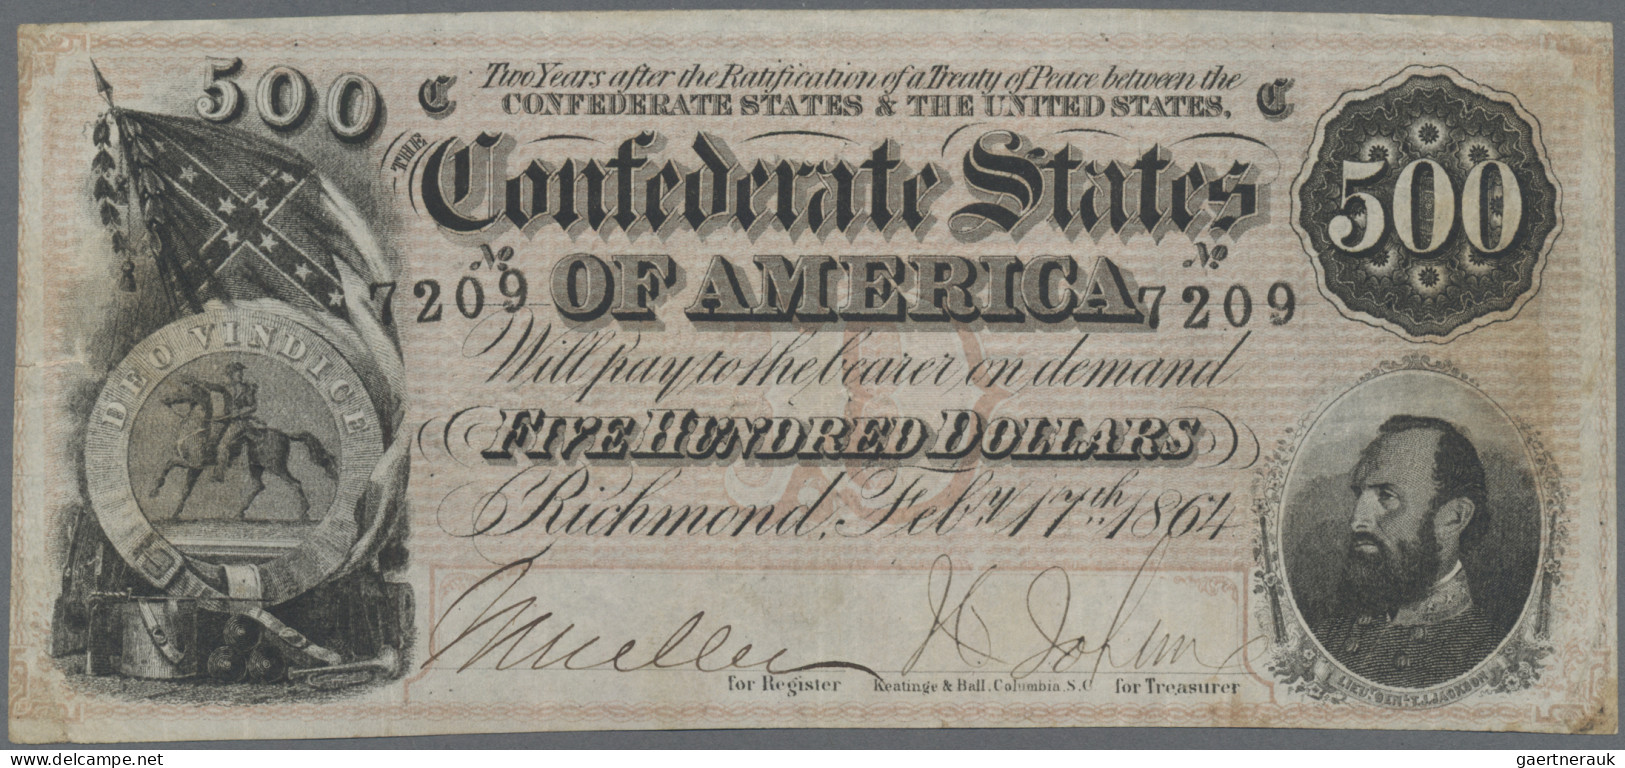 500
C Two Years after the Ratification of a Treaty of Peace between the C
CONFEDERATE STATES & THE UNITED STATES,
THE
Confederate States
500
No 7209 OF AMERICA No 7209
DEO VINDICE
Will pay to the bearer on demand
FIVE HUNDRED DOLLARS
Richmond, Feby. 17th. 1864
Mueller
for Register Keatinge & Ball. Columbia, S.C for Treasurer
LIEUT. GEN. T.J. JACKSON
gaertnerauk